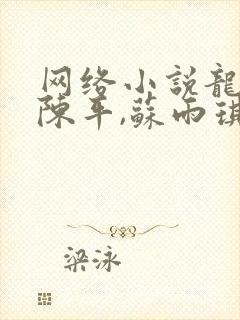 网络小説龍
陳平,蘇雨琪
梁泳